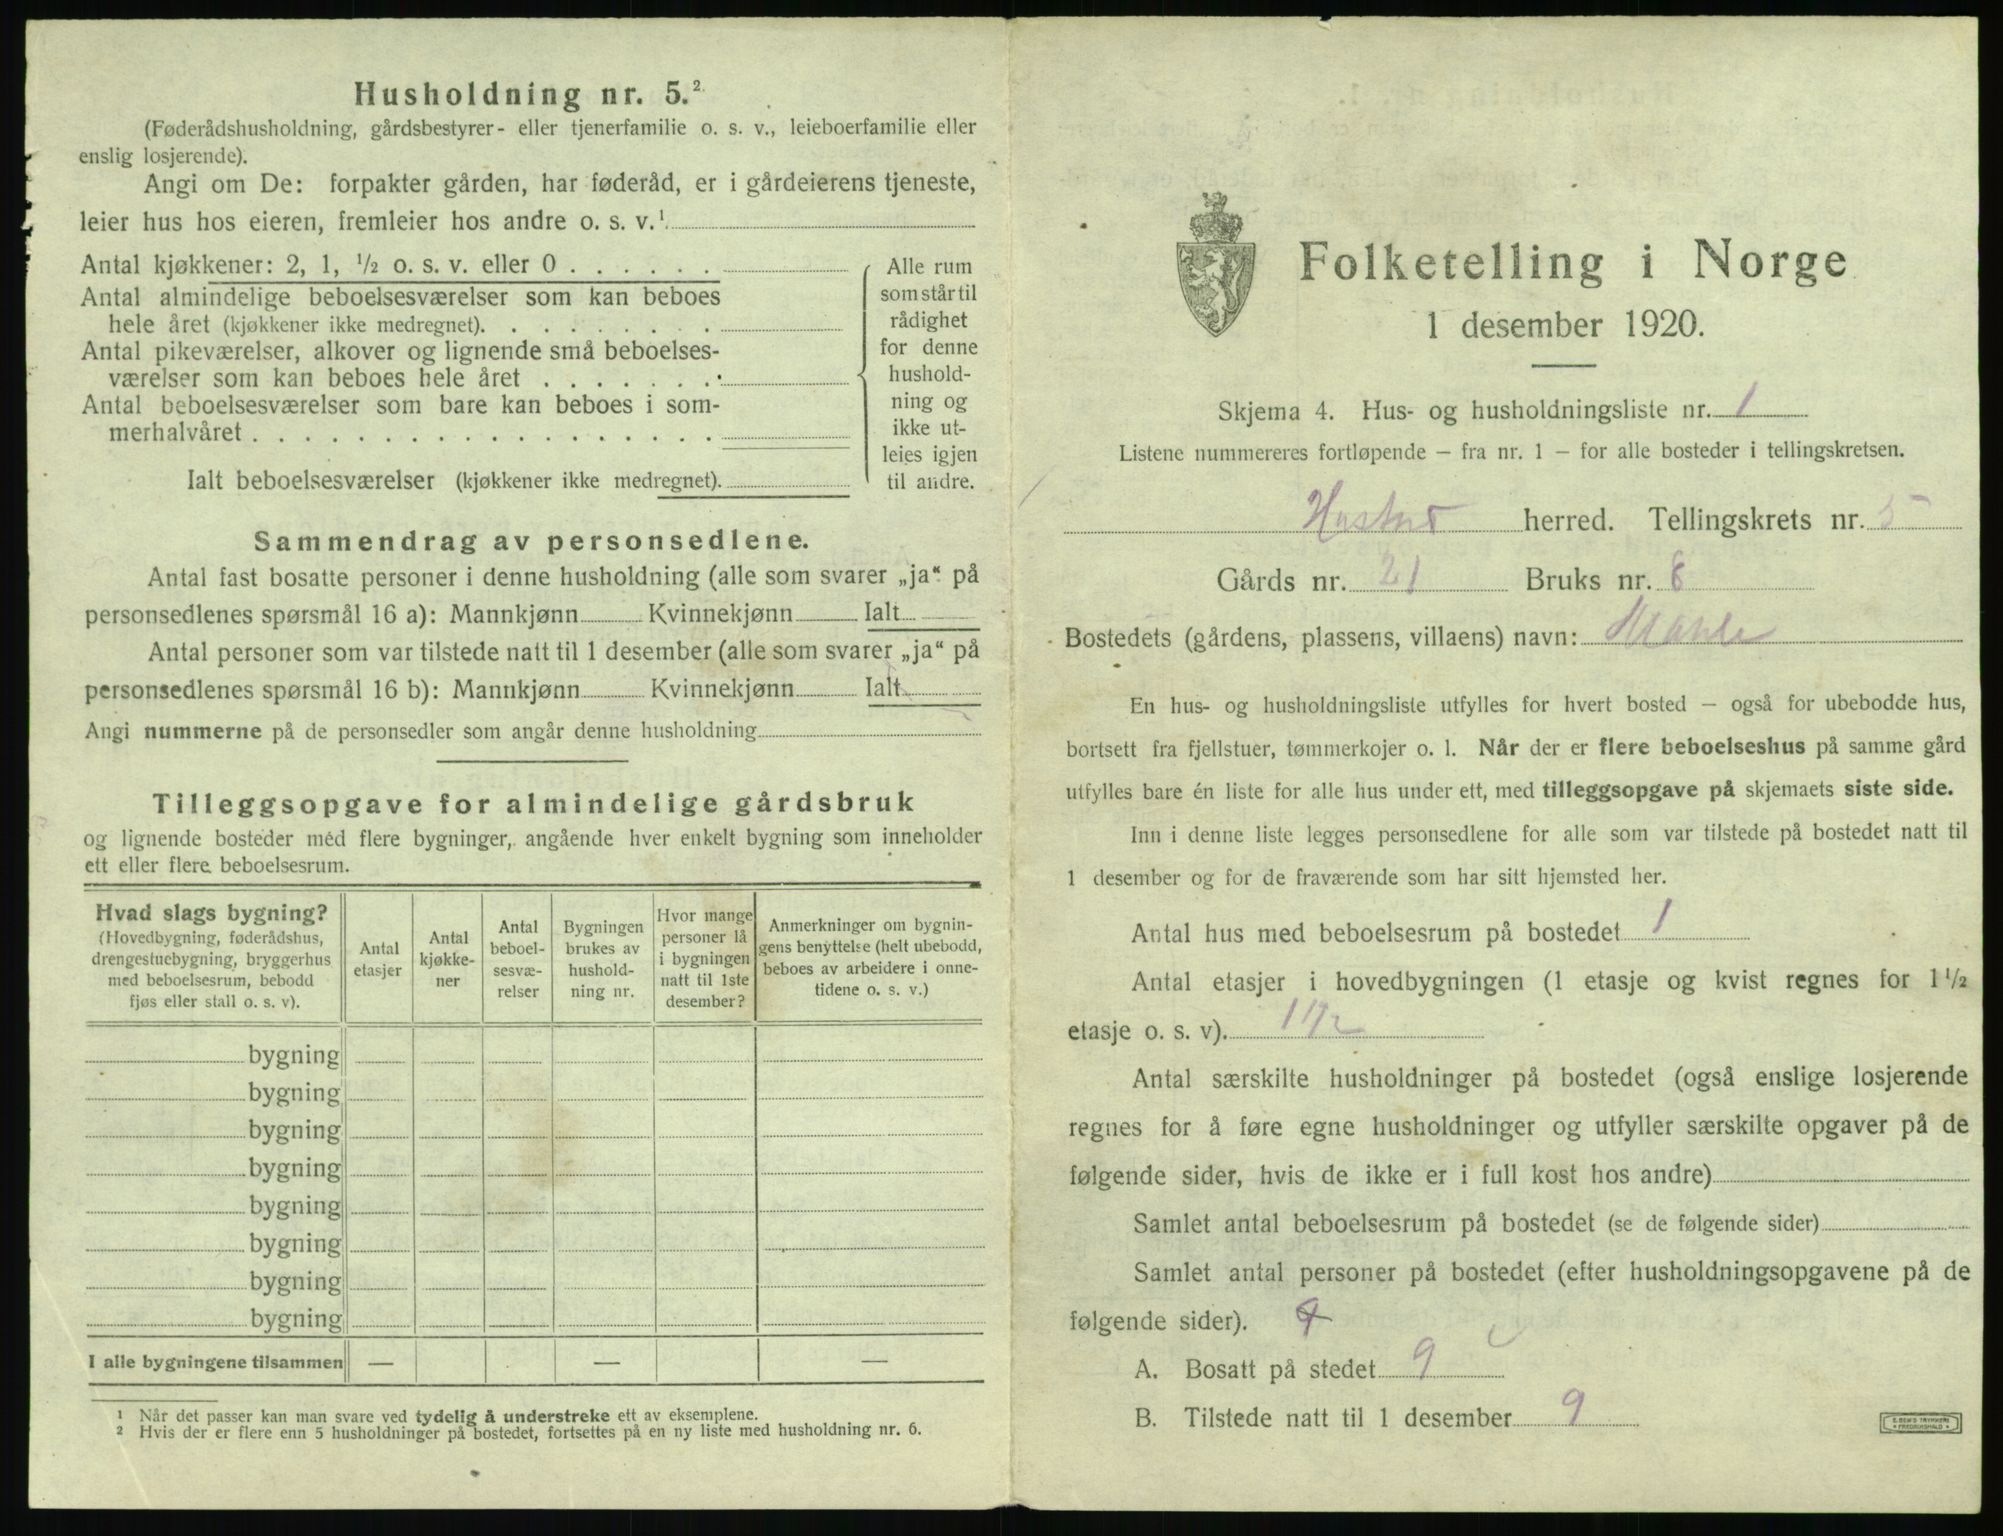 Husholdning nr. 5.²
(Føderådshusholdning, gårdsbestyrer- eller tjenerfamilie o. s. v., leieboerfamilie eller
enslig losjerende).
Angi om De: forpakter gården, har føderåd, er i gårdeierens tjeneste,
leier hus hos eieren, fremleier hos andre o. s. v.¹
Antal kjøkkener: 2, 1, ½ o. s. v. eller 0 . . . . . .
Antal almindelige beboelsesværelser som kan beboes
hele året (kjøkkener ikke medregnet). . . . . . . . .
Antal pikeværelser, alkover og lignende små beboelses-
værelser som kan beboes hele året . . . . . . .
Antal beboelsesværelser som bare kan beboes i som-
merhalvåret . . . . . . . . . . . . . . . . . .
Ialt beboelsesværelser (kjøkkener ikke medregnet).
Alle rum
som står til
rådighet
for denne
hushold-
ning og
ikke ut-
leies igjen
til andre.
Sammendrag av personsedlene.
Antal fast bosatte personer i denne husholdning (alle som svarer „ja“ på
personsedlenes spørsmål 16 a): Mannkjønn Kvinnekjønn Ialt
Antal personer som var tilstede natt til 1 desember (alle som svarer „ja“ på
personsedlenes spørsmål 16 b): Mannkjønn Kvinnekjønn Ialt
Angi nummerne på de personsedler som angår denne husholdning
Tilleggsopgave for almindelige gårdsbruk
og lignende bosteder med flere bygninger, angående hver enkelt bygning som inneholder
ett eller flere beboelsesrum.
Hvad slags bygning?
(Hovedbygning, føderådshus,
drengestuebygning, bryggerhus
med beboelsesrum, bebodd
fjøs eller stall o. s. v).
Antal
etasjer
Antal
kjøkke-
ner
Antal
beboel-
sesvæ-
relser
Bygningen
brukes av
hushold-
ning nr.
Hvor mange
personer lå
i bygningen
natt til 1ste
desember?
Anmerkninger om bygnin-
gens benyttelse (helt ubebodd,
beboes av arbeidere i onne-
tidene o. s. v.)
bygning
bygning
bygning
bygning
bygning
bygning
bygning
bygning
I alle bygningene tilsammen — — —
¹ Når det passer kan man svare ved tydelig å understreke ett av eksemplene.
² Hvis der er flere enn 5 husholdninger på bostedet, fortsettes på en ny liste med husholdning nr. 6.
Folketelling i Norge
1 desember 1920.
Skjema 4. Hus- og husholdningsliste nr. 1
Listene nummereres fortløpende — fra nr. 1 — for alle bosteder i tellingskretsen.
Hustad herred. Tellingskrets nr. 5
Gårds nr. 21 Bruks nr. 8
Bostedets (gårdens, plassens, villaens) navn:
En hus- og husholdningsliste utfylles for hvert bosted — også for ubebodde hus,
bortsett fra fjellstuer, tømmerkojer o. l. Når der er flere beboelseshus på samme gård
utfylles bare én liste for alle hus under ett, med tilleggsopgave på skjemaets siste side.
Inn i denne liste legges personsedlene for alle som var tilstede på bostedet natt til
1 desember og for de fraværende som har sitt hjemsted her.
Antal hus med beboelsesrum på bostedet 1
Antal etasjer i hovedbygningen (1 etasje og kvist regnes for 1 ½
etasje o. s. v). 1 1/2
Antal særskilte husholdninger på bostedet (også enslige losjerende
regnes for å føre egne husholdninger og utfyller særskilte opgaver på de
følgende sider, hvis de ikke er i full kost hos andre)
Samlet antal beboelsesrum på bostedet (se de følgende sider)
Samlet antal personer på bostedet (efter husholdningsopgavene på de
følgende sider). 9
A. Bosatt på stedet 9
B. Tilstede natt til 1 desember 9